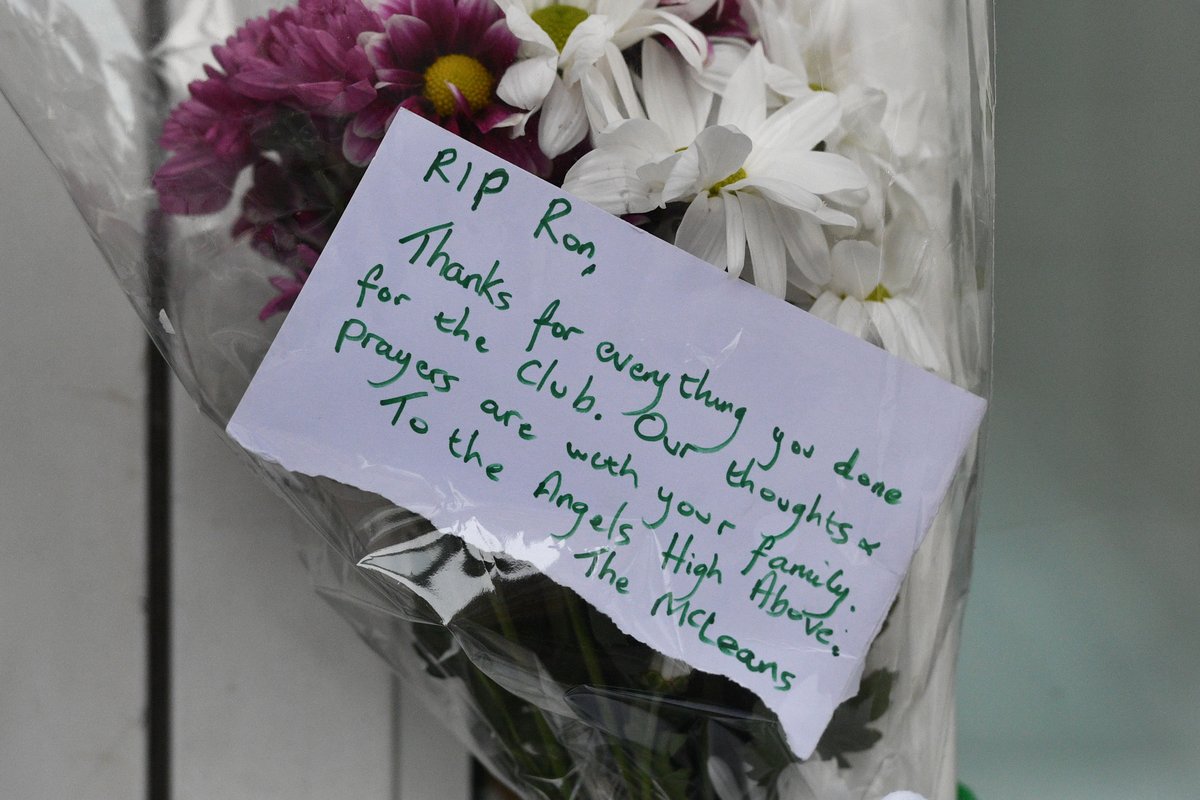 RIP Ron,
Thanks for everything you done
for the Club. Our thoughts &
prayers are with your family.
To the Angels High Above.
The McLeans